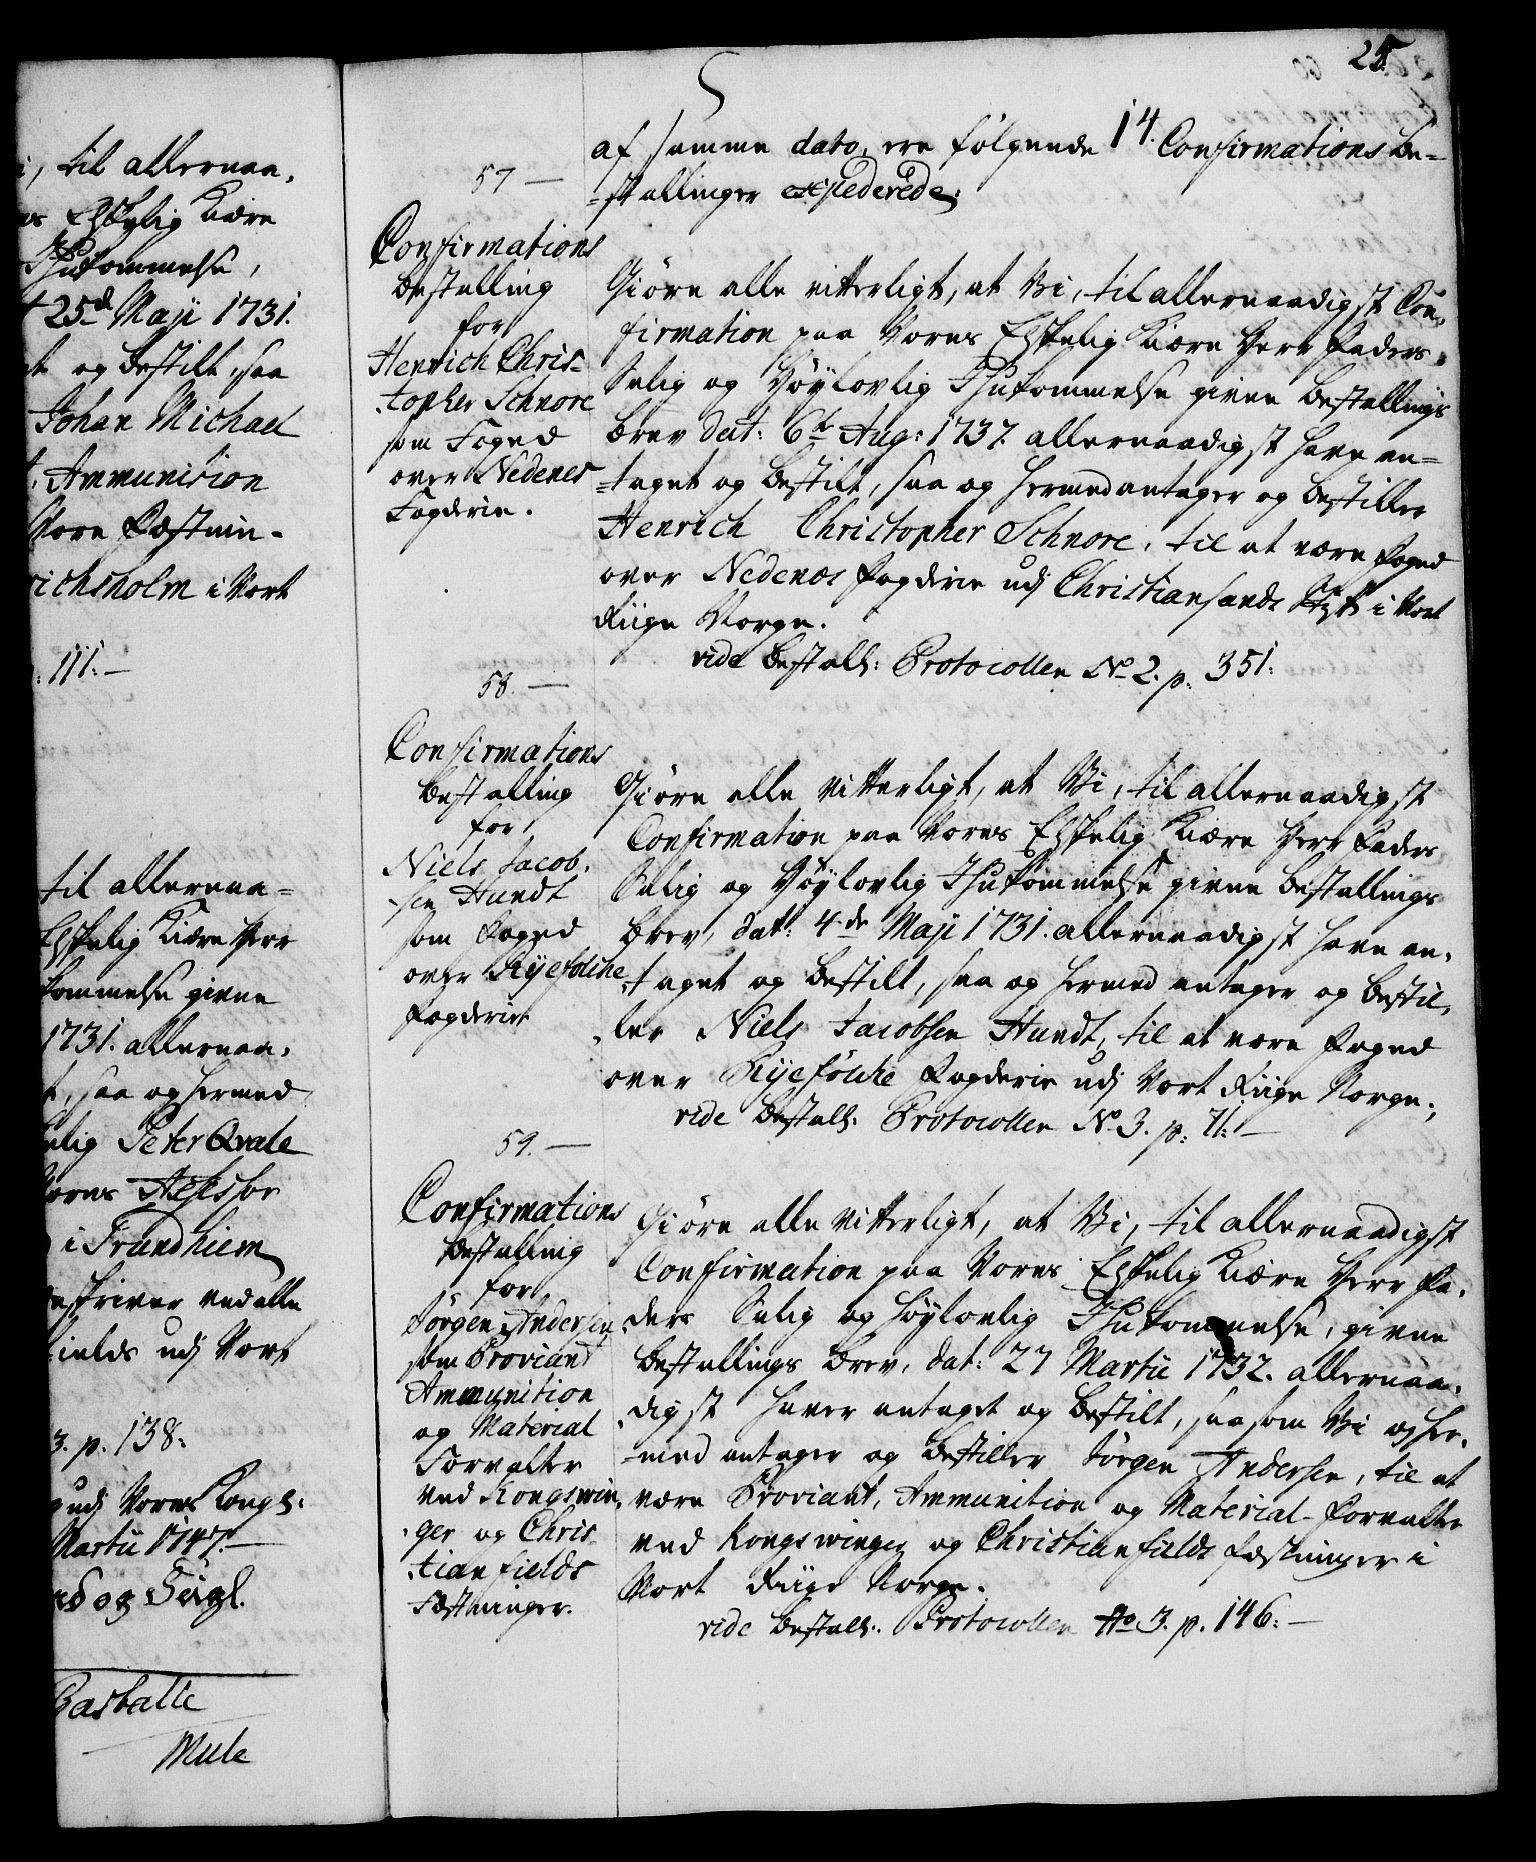 25.
i, til allernaa-
Elskelig Kiære
Ihukommelse,
25de Maji 1731.
og bestilt, saa
Johan Michael
Ammunition
Vore Fæstnin-
richsholm i Vort
: 111:—
til allernaa-
Elskelig Kiære Herr
kommelse givne
1731. allernaa-
t, saa og hermed
Peter Qvale
Vores Assessor
i Trundhiem
skriver ved alle
fields udj Vort
3. p. 138:
udj Vores Kongl:
Martii 1747.—
og Seigl.
Mule
af samme dato, ere følgende 14. Confirmations Be-
-stallinger expederede.
57—
Confirmations
Bestalling
for
Henrich Chris-
-topher Schnore
som Foged
over Nedenes
Fogderie.
Giøre alle vitterligt, at Vi, til allernaadigst Con-
firmation paa Vores Elskelig Kiære Herr Faders,
Salig og Høylovlig Ihukommelse givne Bestallings
Brev dat: 6te Aug: 1737. allernaadigst have an-
-taget og bestilt, saa og hermed antager og bestiller
Henrich Christopher Schnore, til at være Foged
over Nedenes Fogderie udj Christiansands Stift i Vort
Riige Norge.
vide Bestall: Protocollen No 2. p. 351:
58.—
Confirmations
Bestalling
for
Niels Jacob-
-sen Hundt
som Foged
over Ryefölche
Fogderie
Giøre alle vitterligt, at Vi, til allernaadigst
Confirmation paa Vores Elskelig Kiære Herr Faders
Salig og Høylovlig Ihukommelse givne Bestallings
Brev, dat: 4de Maji 1731. allernaadigst have an-
-taget og bestilt, saa og hermed antager og bestil-
-ler Niels Jacobsen Hundt, til at være Foged
over Ryefölche Fogderie udj Vort Riige Norge.
vide Bestall: Protocollen No 3. p: 71:—
59.—
Confirmations
Bestalling
for
Jörgen Andersen
som Proviant
Ammunition
og Material
Forvalter
ved Kongswin-
-ger og Chris-
-tianfields
Fæstninger.
Giøre alle vitterligt, at Vi, til allernaadigst
Confirmation paa Vores Elskelig Kiære Herr Fa-
-ders Salig og Høylovlig Ihukommelse, givne
Bestallings Brev, dat: 27 Martii 1732. allernaa-
-digst haver antaget og bestilt, saasom Vi og her-
-med antager og bestiller Jörgen Andersen, til at
være Proviant, Ammunition og Material-Forvalter
ved Kongswinger og Christianfields Fæstninger i
Vort Riige Norge.
vide Bestall: Protocollen No 3. p. 146:—